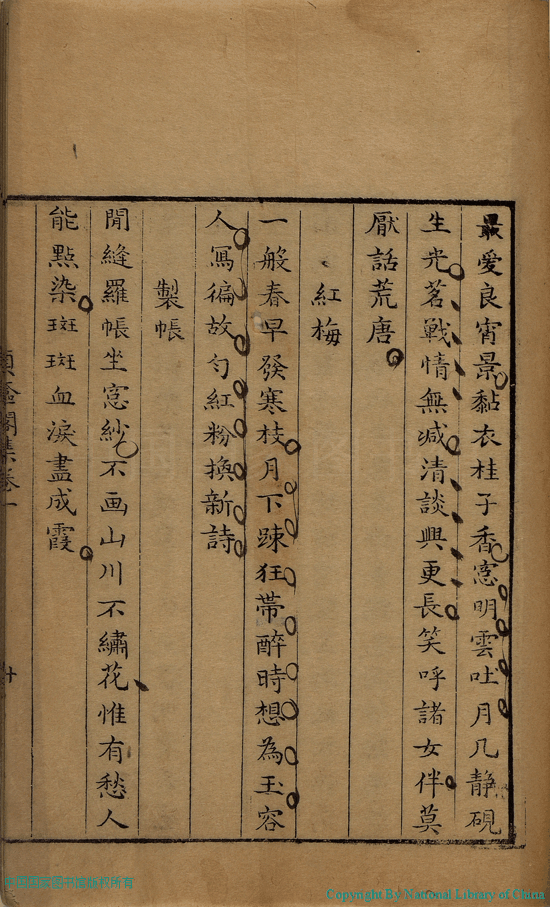 最爱良宵景黏衣桂子香窓明雲吐月几静硯
生光茗戦情無减清談興更長笑呼諸女伴莫
厭話荒唐
紅梅
一般春早發寒枝月下踈狂帯醉時想為玉容
人寫徧故匀紅粉換新詩
製帳
閒縫羅帳坐窓紗不画山川不繡花惟有愁人
能點染斑斑血淚盡成霞
閣集卷一
十
中国国家图书馆版权所有
Copyright By National Library of China